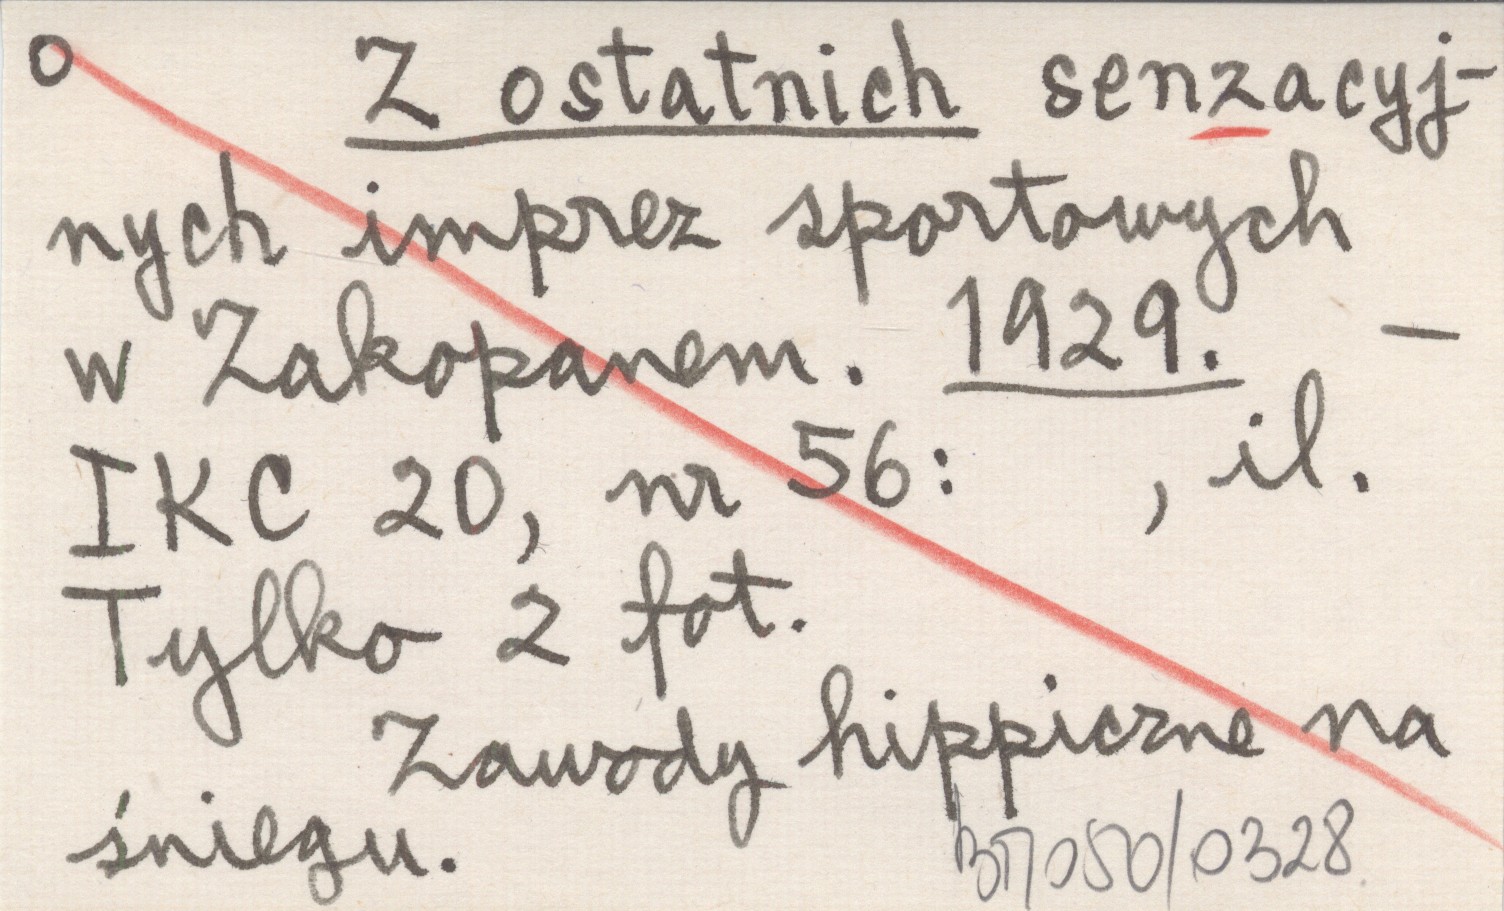 o Z ostatnich senzacyj-
nych imprez sportowych
w Zakopanem. 1929. –
IKC 20, nr 56: , il.
Tylko 2 fot.
Zawody hippiczne na
śniegu.
BT/050/0328